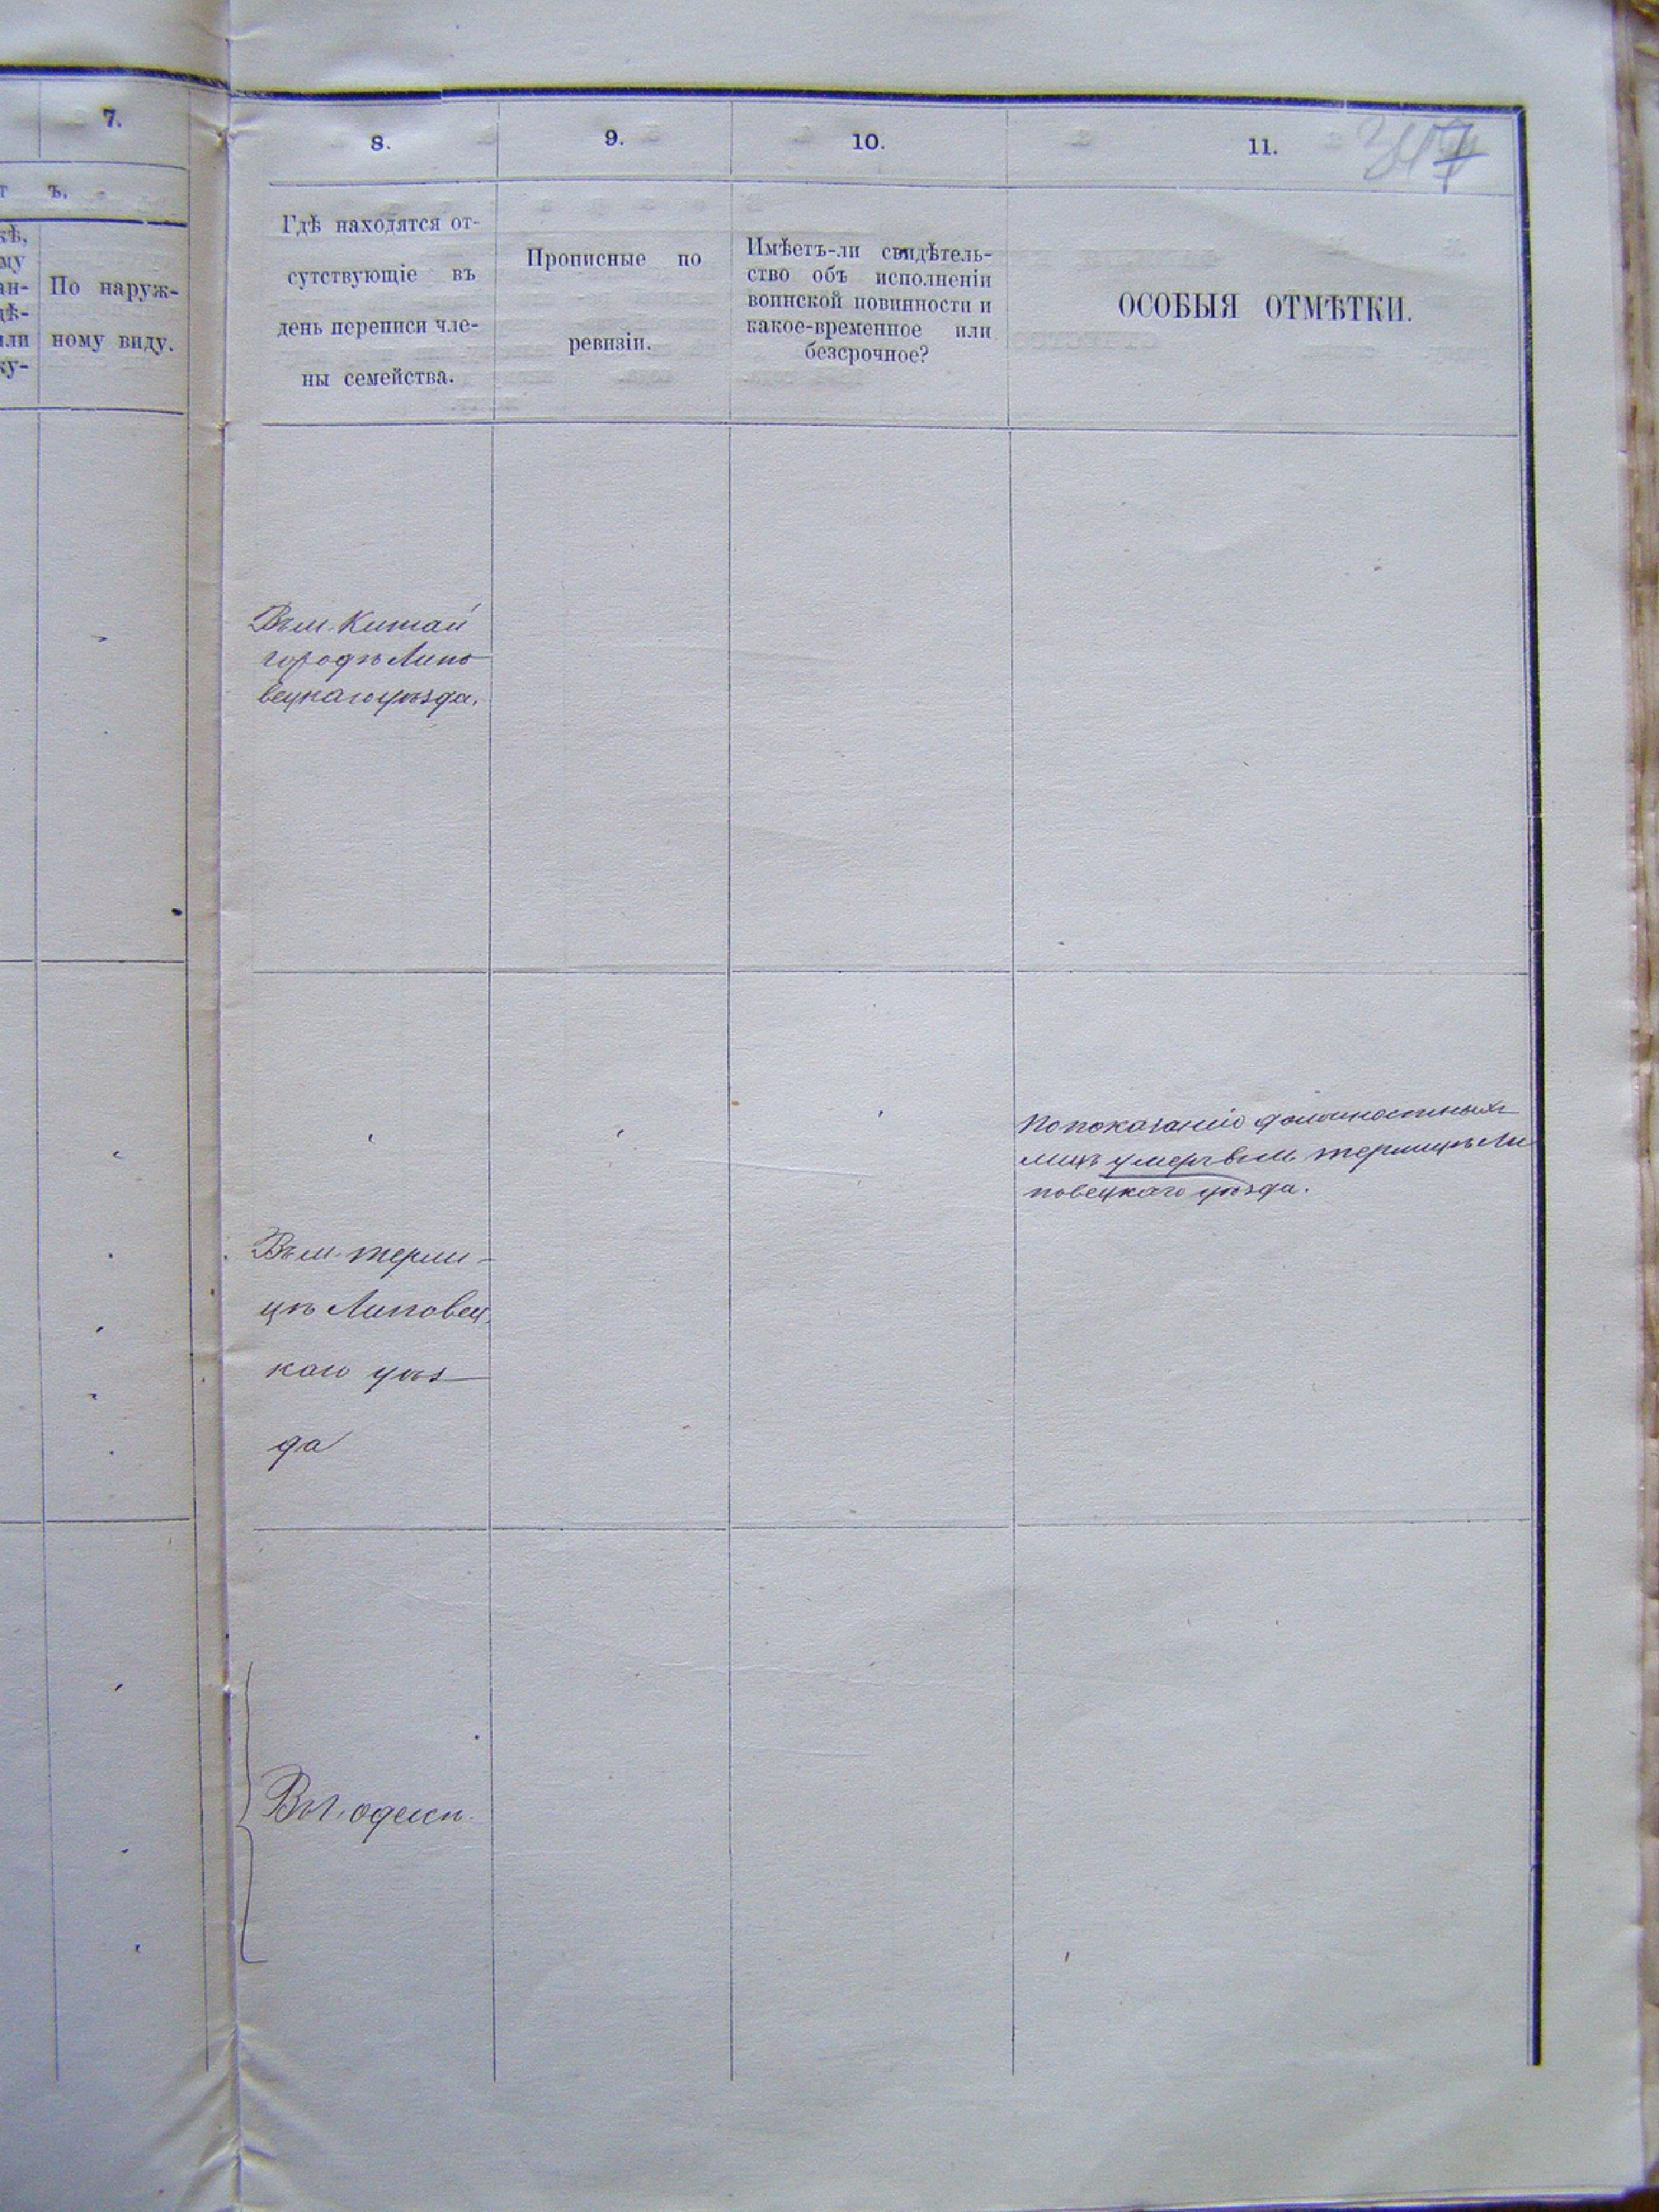 7.
8.
9.
10.
11.
ъ.
кѣ,
му
ан-
дѣ-
или
ку-
По наруж-
ному виду.
Гдѣ находятся от-
сутствующіе въ
день переписи чле-
ны семейства.
Прописные по
ревизіи.
Имѣетъ-ли свидѣтель-
ство объ исполненіи
воинской повинности и
какое-временное или
безсрочное?
ОСОБЫЯ ОТМѢТКИ.
Въ м. Китай
городѣ Липо
вецкаго уѣзда.
По показанію должностныхъ
лицъ умеръ въ м. Терлицѣ Ли
повецкаго уѣзда.
Въ м. терли-
цѣ Липовец.
каго уѣз
да
Въ г. одессѣ.